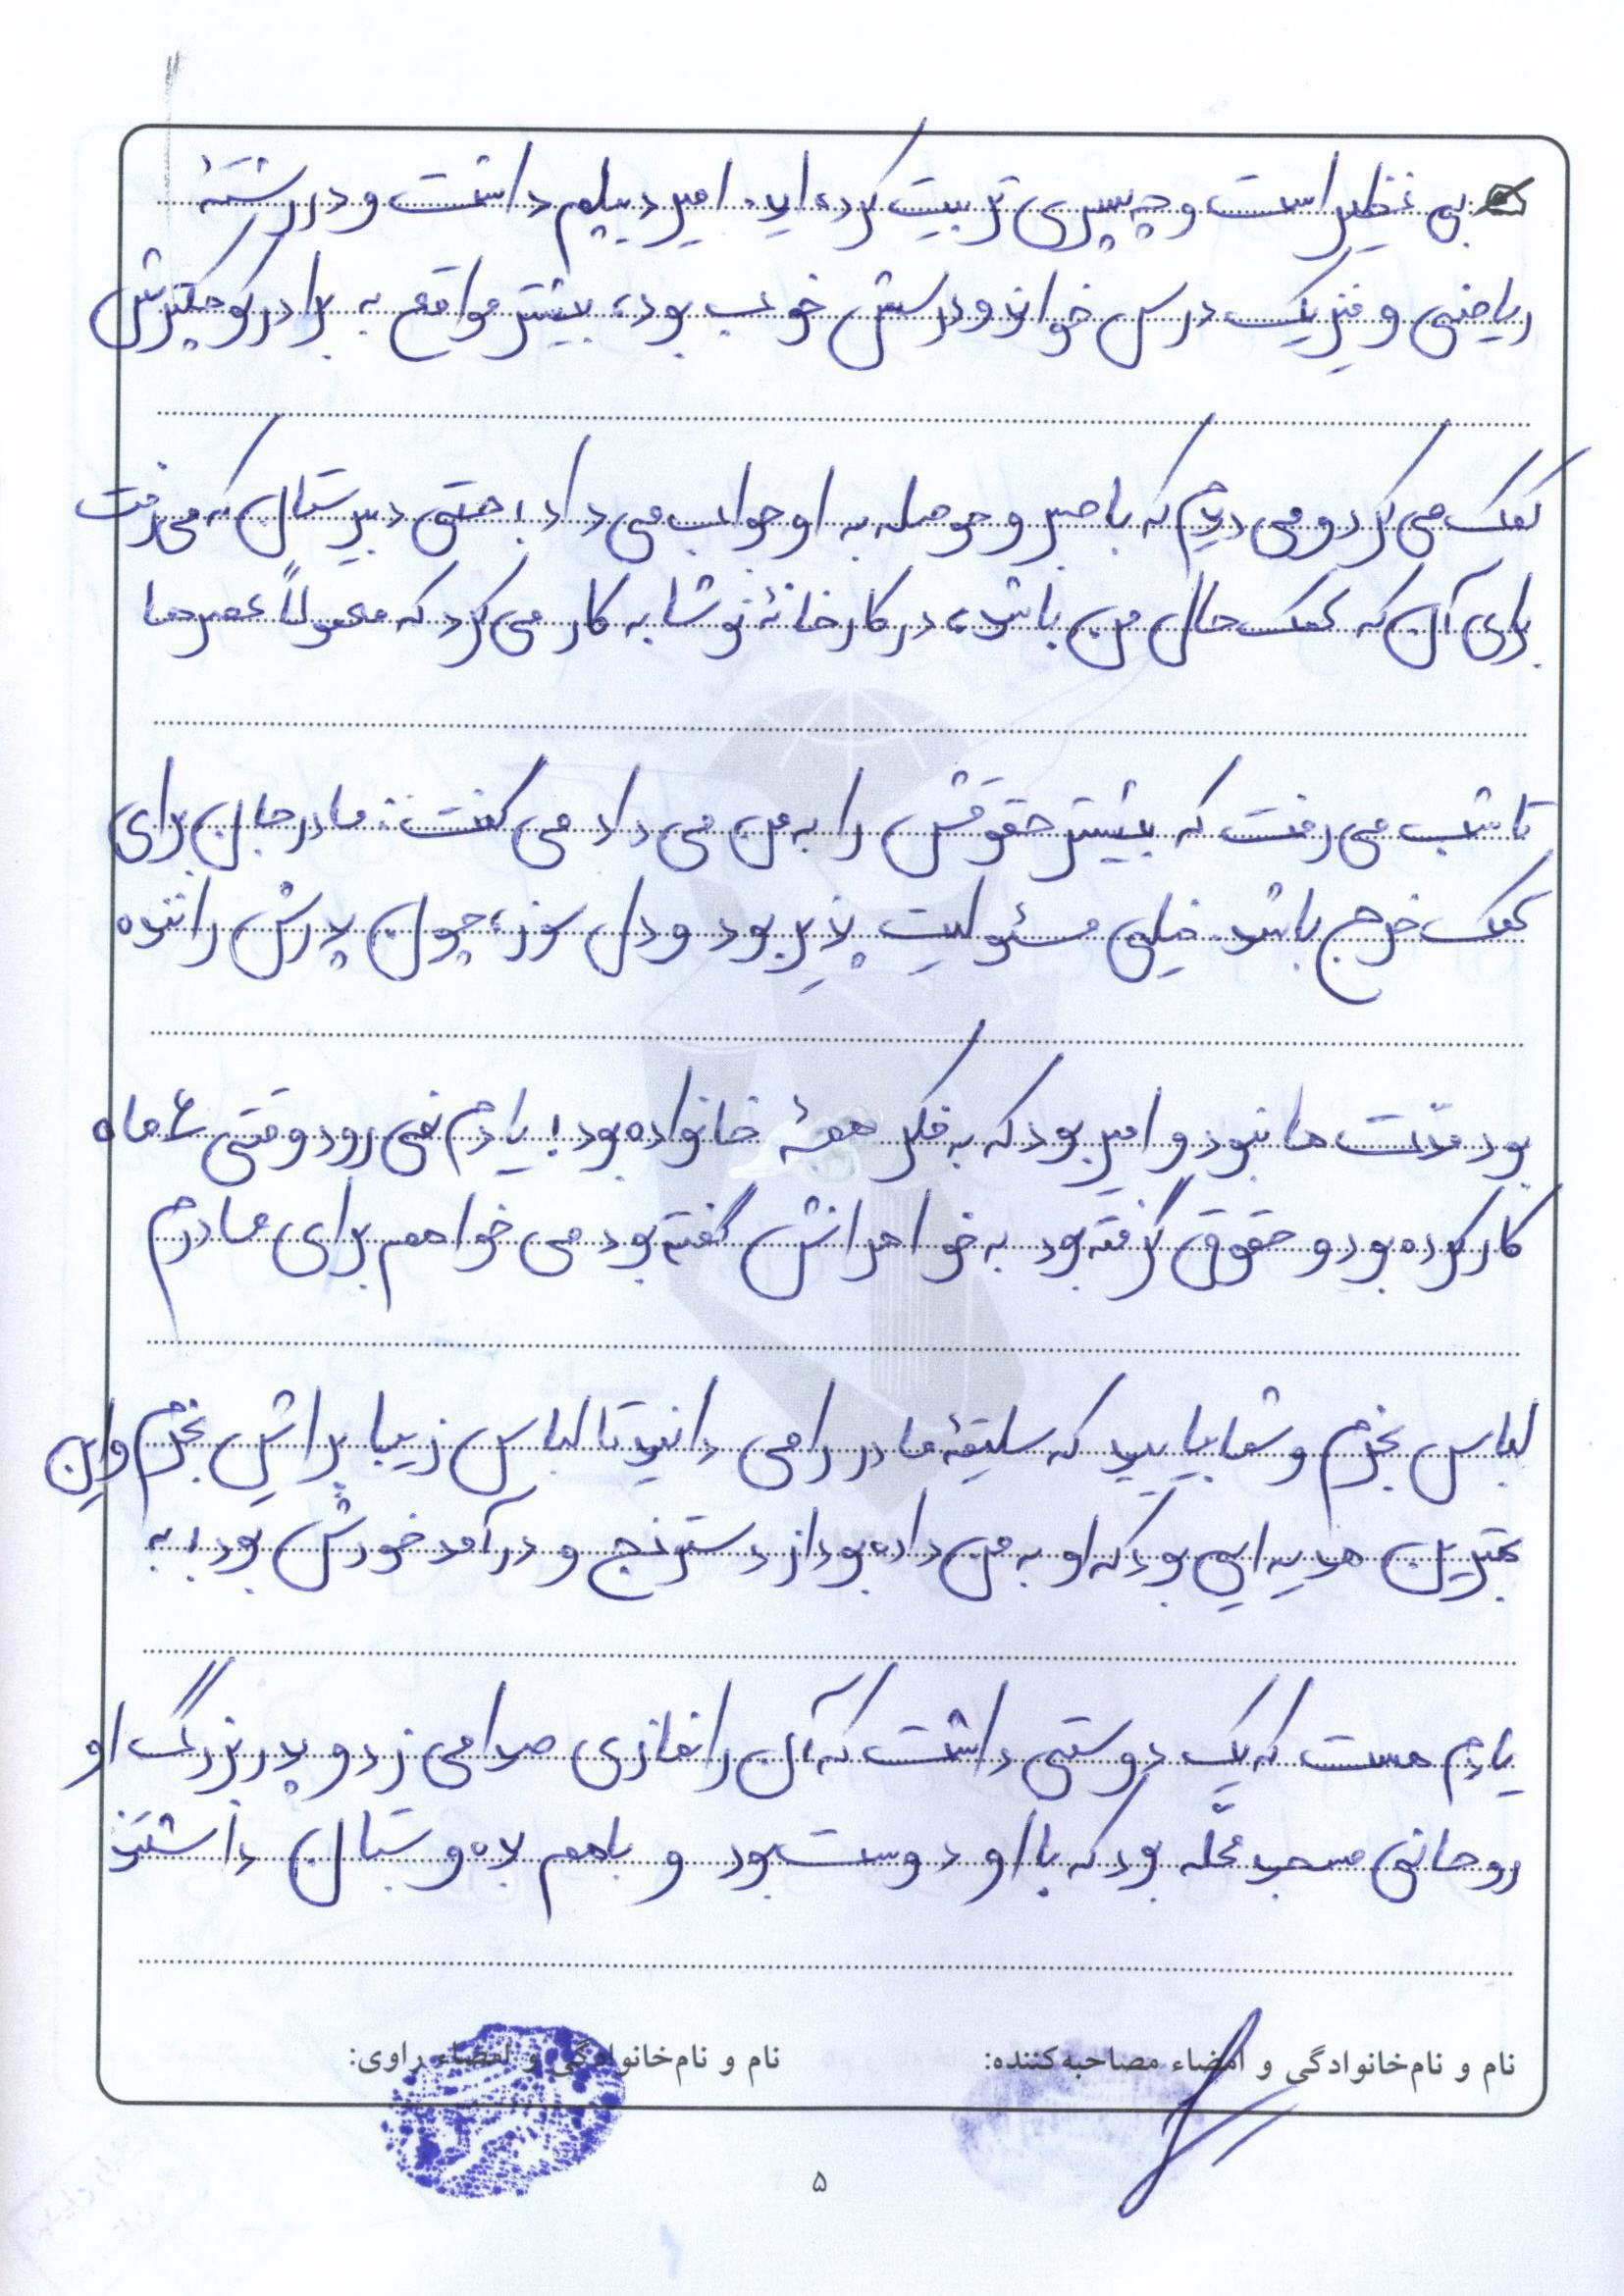 بی نظیر است و چه پسری تربیت کرده اید. امیر دیپلم داشت و در رشتهٔ
ریاضی و فیزیک درس خواند و درسش خوب بود، بیشتر مواقع به برادر کوچکترش
کمک می کرد و می دیدم که با صبر و حوصله به او جواب می داد؛ حتی دبیرستان که می رفت
برای آن که کمک حال من باشد، در کارخانهٔ نوشابه کار می کرد که معمولاً عصرها
تا شب می رفت که بیشتر حقوقش را به من می داد می گفت: مادر جان برای
کمک خرج باشد. خیلی مسئولیت پذیر بود و دل سوز، چون پدرش راننده
بود مدّت ها نبود و امیر بود که به فکر همهٔ خانواده بود؛ یادم نمی رود وقتی ۶ ماه
کار کرده بود و حقوق گرفته بود به خواهرانش گفته بود می خواهم برای مادرم
لباس بخرم و شما بیایید که سلیقهٔ مادر را می دانید تا لباس زیبا برایش بخرم و این
بهترین هدیه ایی بود که او به من داده بود از دسترنج و درآمد خودش بود؛ به
یادم هست که یک دوستی داشت که آن را نمازی صدا می زد و پدربزرگ او
روحانی مسجد محلّه بود که با او دوست بود و با هم لاه و ستبال داشتند
نام و نام‌خانوادگی و امضاء مصاحبه‌کننده:
نام و نام‌خانوادگی و امضاء راوی:
۵